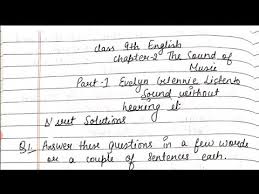 class 9th English
chapter-2 The Sound of
Music
Part-I Evelyn Glennie Listen to
Sound without
hearing it
Ncert Solutions
Q1. Answer these Questions in a few words
or a couple of sentences each.